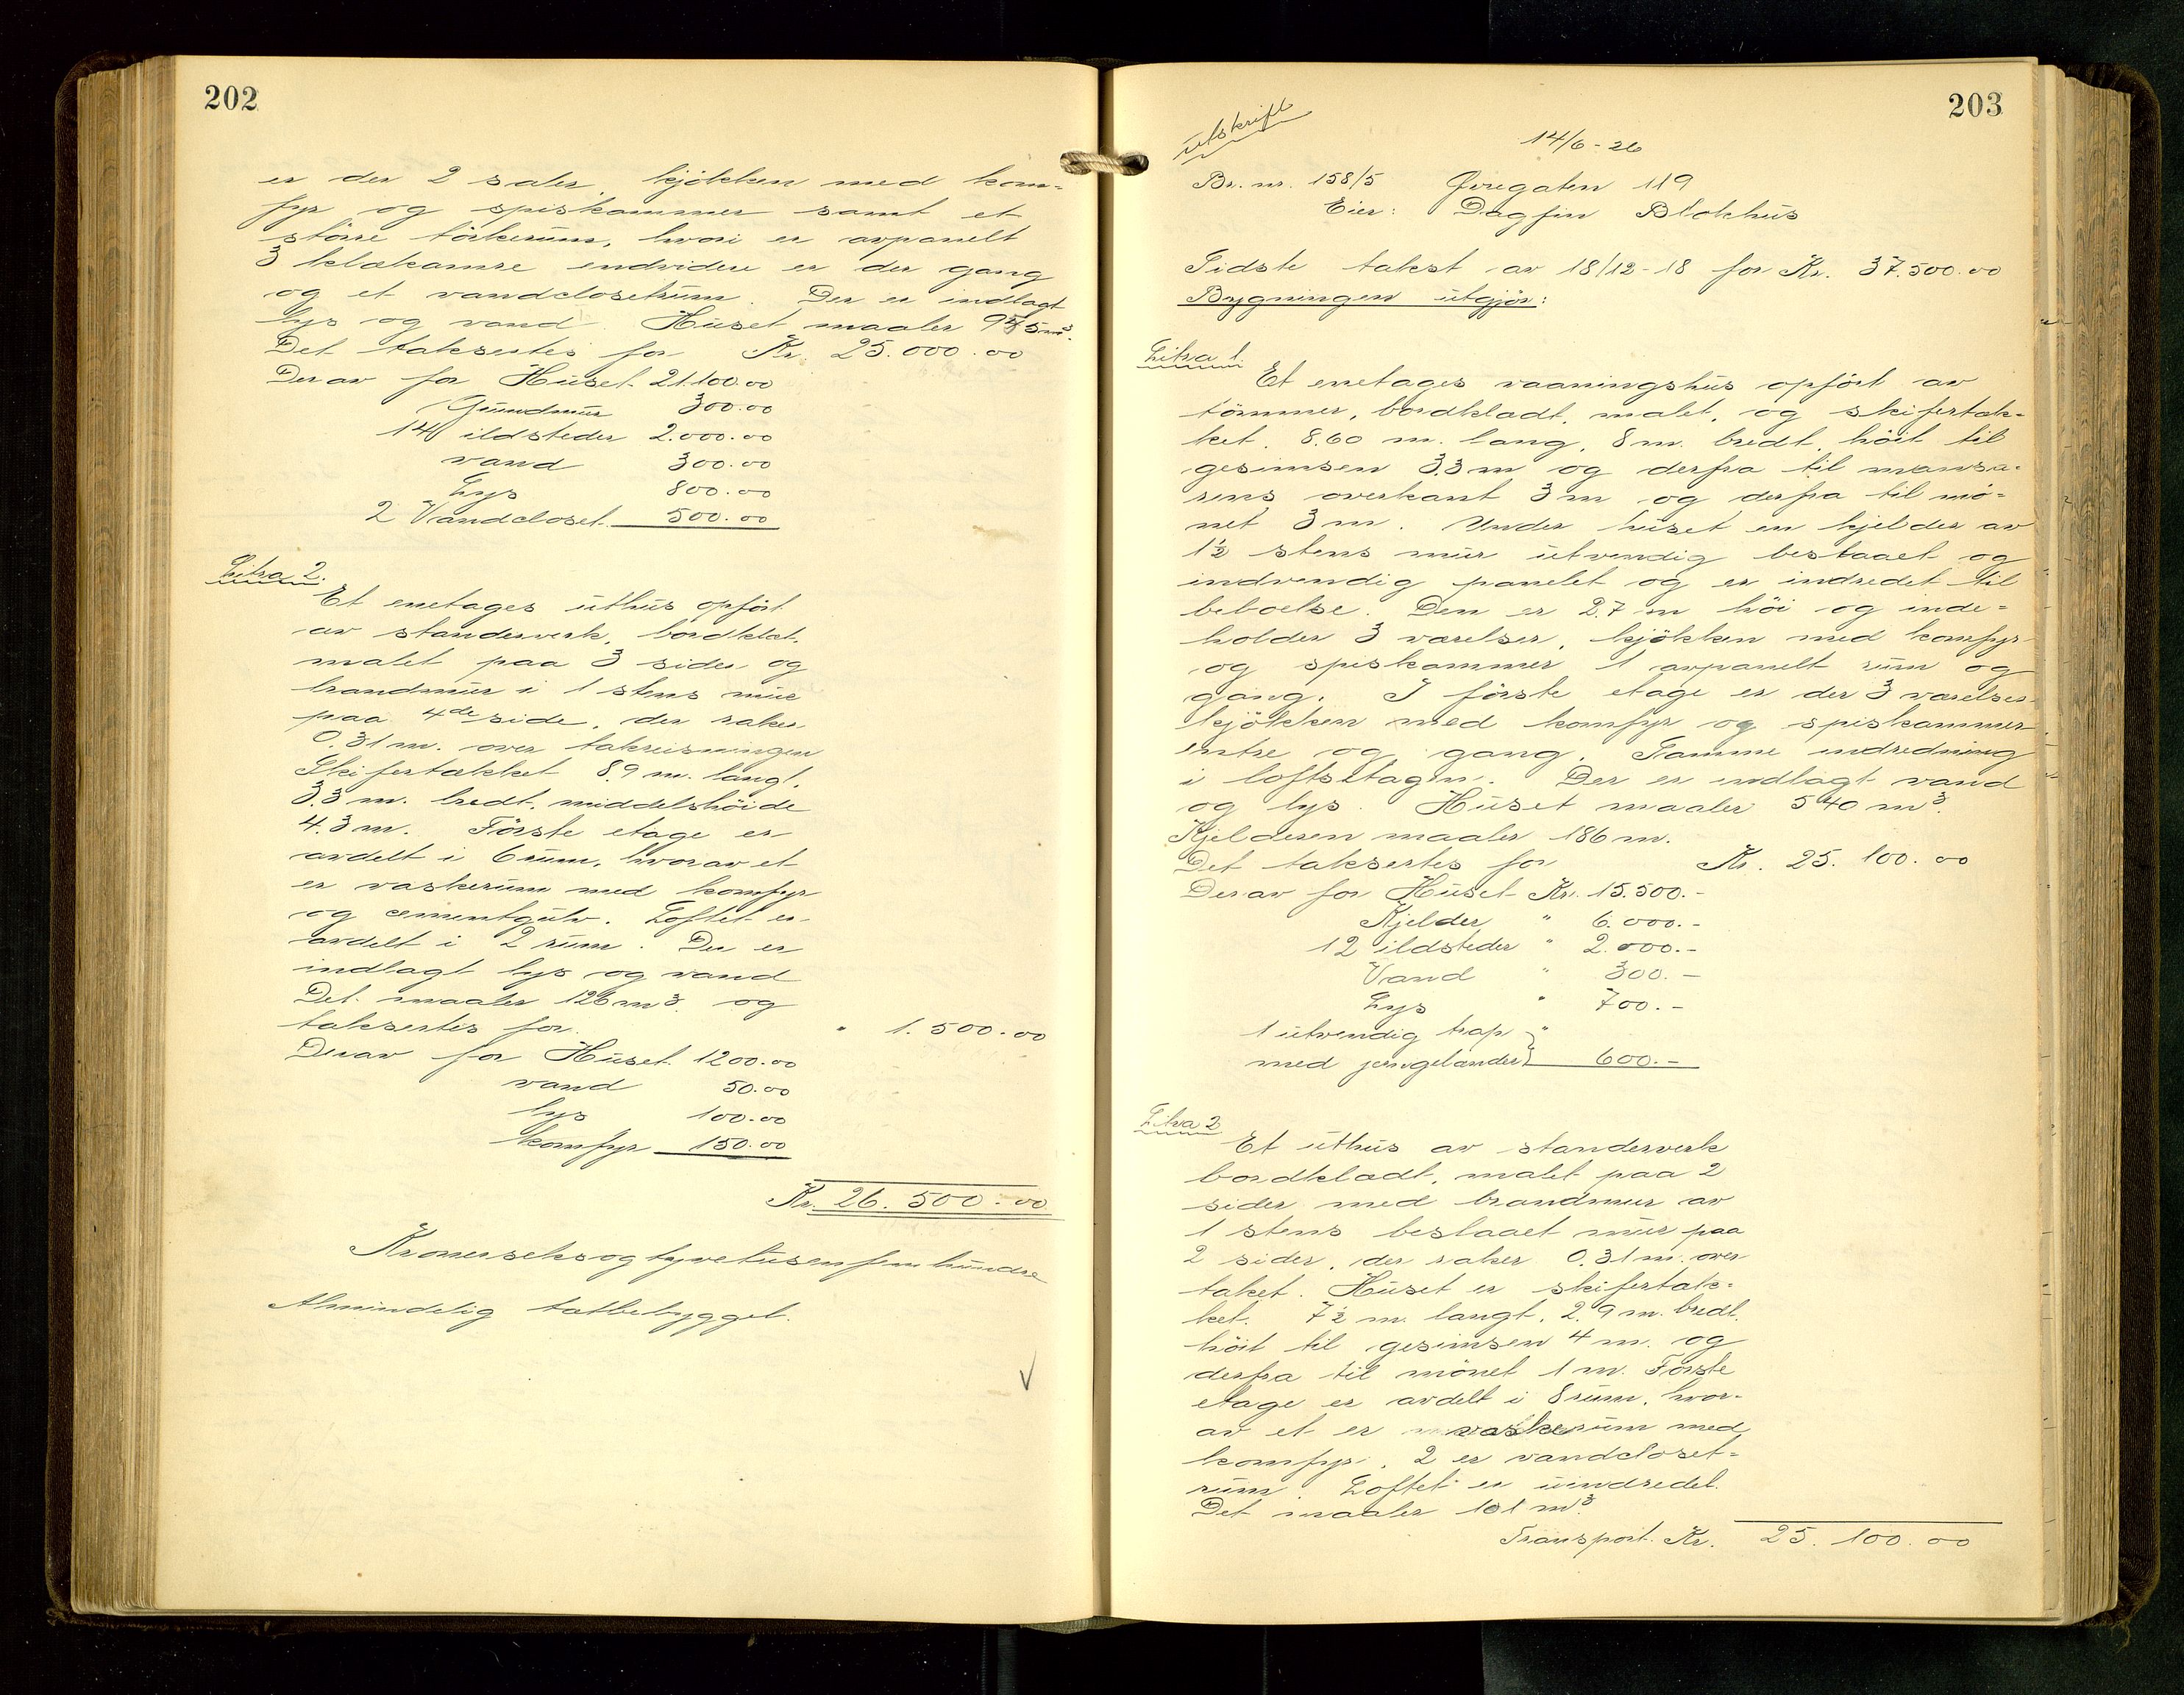 202
er der 2 saler, kjökken med kom-
fyr og spiskammer samt et
större törkerum, hvori er avpanelt
3 klækamre endvidere er der gang
og et vandclosetrum. Der er indlagt
lys og vand. Huset maaler 945 m³.
Det taksertes for Kr. 25.000.00
Derav for Huset 21.100.00
Grundmur 300.00
14 ildsteder 2.000.00
vand 300.00
Lys 800.00
2 Vandcloset 500.00
Litra 2.
Et enetages uthus opfört
av standerverk, bordklæt,
malet paa 3 sider og
brandmur i 1 stens mur
paa 4de side, der raker
0.31 m. over takreisningen
Skifertækket 8.9 m. langt,
3.3 m. bredt, middelshöide
4.3 m. Förste etage er
avdelt i 6 rum, hvorav et
er vaskerum med komfyr
og cementgulv. Loftet er
avdelt i 2 rum. Der er
indlagt lys og vand
Det maaler 126 m³ og
taksertes for " 1.500.00
Derav for Huset 1200.00
vand 50.00
lys 100.00
komfyr 150.00
Kr. 26.500.00
Kroner seks og tyvetusen fem hundre
Almindelig tætbebygget.
203
utskrift
14/6-26
Br. nr. 158/5 Øvregaten 119
Eier: Dagfin Blokhus
Sidste takst av 18/12-18 for Kr. 37.500.00
Bygningen utgjör:
Litra 1.
Et enetages vaaningshus opfört av
tömmer, bordklædt, malet, og skifertæk-
ket. 8.60 m. lang, 8 m. bredt, höit til
gesimsen 3.3 m og derfra til mansa-
rens overkant 3 m og derfra til mö-
net 3 m. Under huset en kjelder av
1½ stens mur utvendig beslaaet og
indvendig panelet og er indredet til
beboelse. Den er 2.7 m höi og inde-
holder 3 værelser, kjökken med komfyr
og spiskammer 1 avpanelt rum og
gang. I förste etage er der 3 værelser
kjökken med komfyr og spiskammer,
entre og gang. Samme indredning
i loftsetagen. Der er indlagt vand
og lys. Huset maaler 540 m³.
Kjelderen maaler 186 m.
Det taksertes for Kr. 25.100.00
Derav for Huset Kr. 15.500.-
Kjelder " 6.000.-
12 ildsteder " 2.000.-
Vand " 300.-
Lys " 700.-
1 utvendig trap "
med jerngelænder 600.-
Litra 2
Et uthus av standerverk
bordklædt, malet paa 2
sider med brandmur av
1 stens beslaaet mur paa
2 sider, der raker 0.31 m. over
taket. Huset er skifertæk-
ket. 7½ m. langt, 2.9 m. bredt.
höit til gesimsen 4 m. og
derfra til mönet 1 m. Förste
etage er avdelt i 8 rum, hvor-
av et er vaskerum med
komfyr, 2 er vandcloset-
rum. Loftet er uindredet.
Det maaler 101 m³.
Transport. Kr. 25.100.00